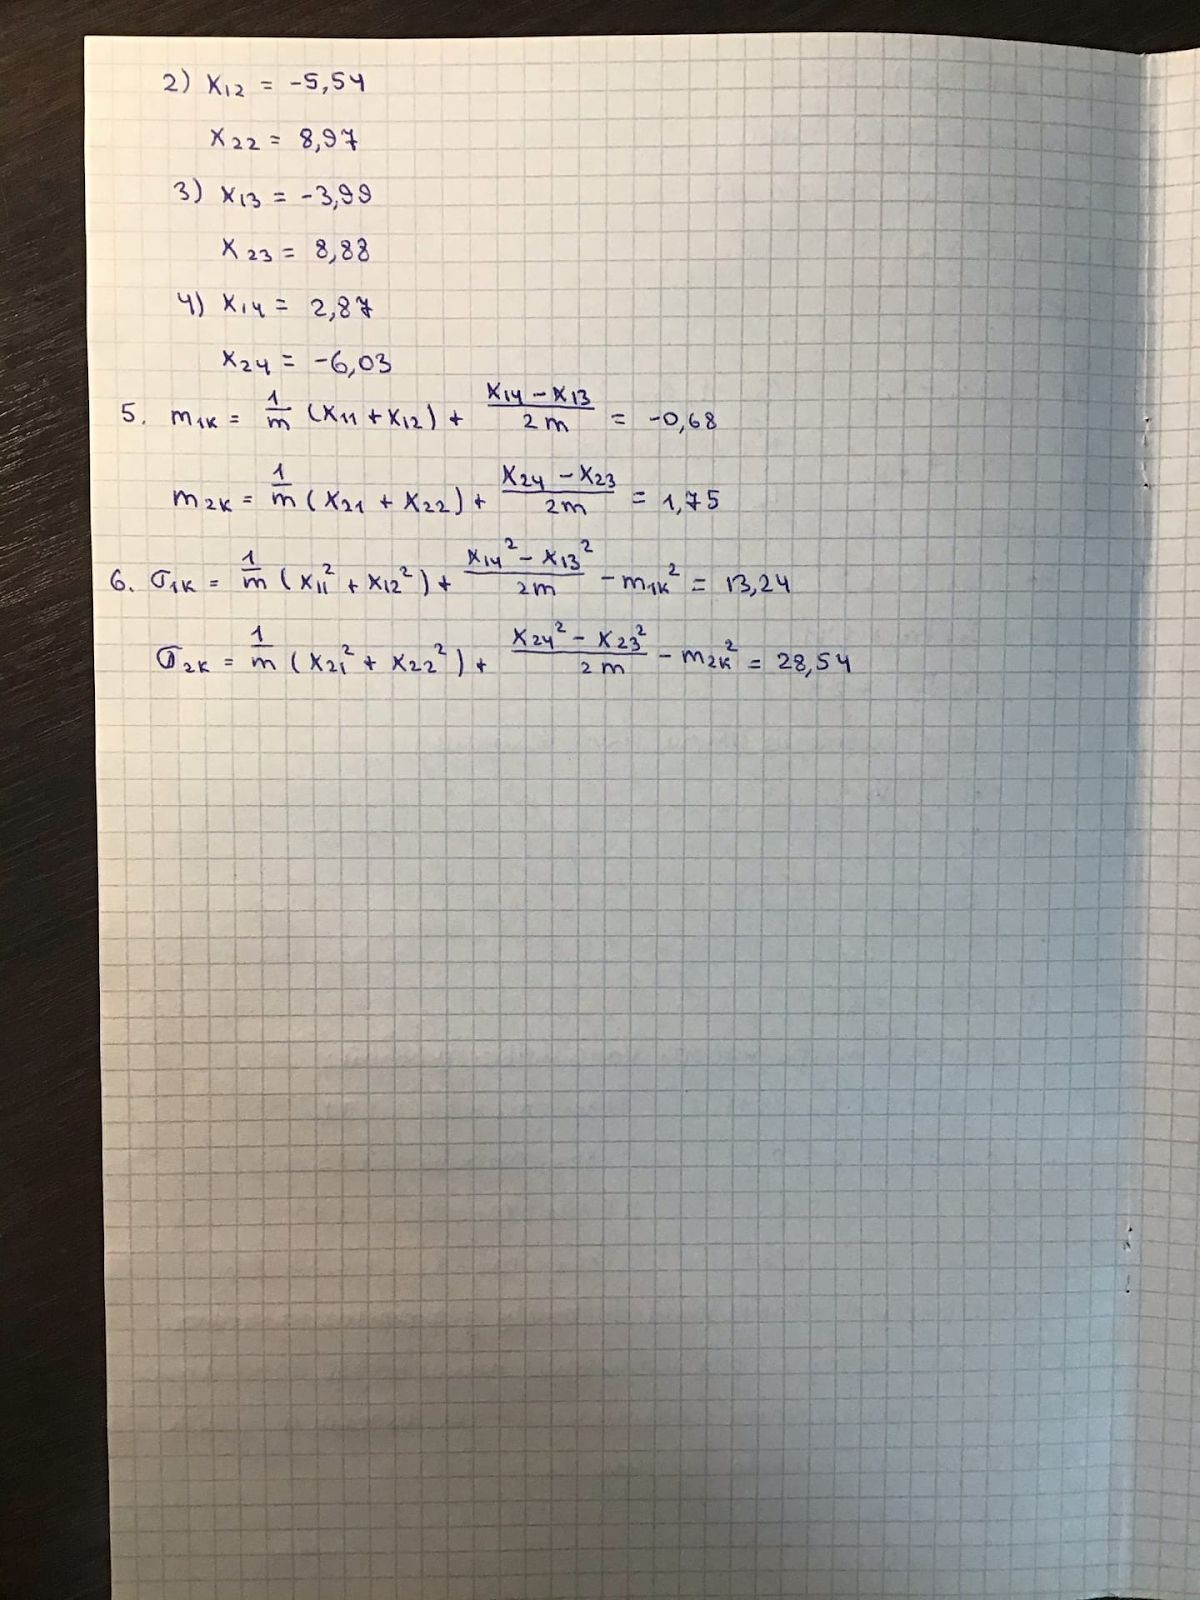 2) x₁₂ = -5,54
x₂₂ = 8,97
3) x₁₃ = -3,99
x₂₃ = 8,88
4) x₁₄ = 2,87
x₂₄ = -6,03
5. m₁ₖ = 1/m (x₁₁ + x₁₂) + (x₁₄ - x₁₃)/2m = -0,68
m₂ₖ = 1/m (x₂₁ + x₂₂) + (x₂₄ - x₂₃)/2m = 1,75
6. σ₁ₖ = 1/m (x₁₁² + x₁₂²) + (x₁₄² - x₁₃²)/2m - m₁ₖ² = 13,24
σ₂ₖ = 1/m (x₂₁² + x₂₂²) + (x₂₄² - x₂₃²)/2m - m₂ₖ² = 28,54